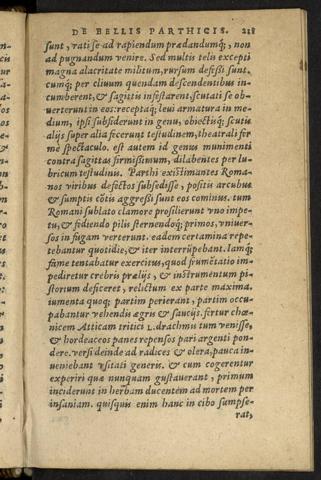 DE BELLIS PARTHICIS. 218
sunt, rati se ad rapiendum prædandumq́;, non
ad pugnandum venire. Sed multis telis excepti
magna alacritate militum, rursum defeßi sunt.
cumq́; per cliuum quendam descendentibus in-
cumberent, & sagittis infestarent, scutati se ob-
uerterunt in eos: receptaq́; leui armatura in me-
dium, ipsi subsiderunt in genu, obiectisq́; scutis
alijs super alia fecerunt testudinem, theatrali for
me spectaculo. est autem id genus munimenti
contra sagittas firmißimum, dilabentes per lu-
bricum testudinis. Parthi existimantes Roma-
nos viribus defectos subsedisse, positis arcubus
& sumptis cōtis aggreßi sunt eos cominus. tum
Romani sublato clamore prosilierunt vno impe-
tu, & fidiendo pilis sternendoq́; primos, vniuer-
sos in fugam verterunt. eadem certamina repe-
tebantur quotidie, & iter interrūpebant. Iamq́;
fame tentabatur exercitus, quod frumētatio im-
pediretur crebris prælijs, & instrumentum pi-
storium deficeret, relictum ex parte maxima.
iumenta quoq; partim perierant, partim occu-
pabantur vehendis ægris & saucijs. fertur chœ-
nicem Atticam tritici L. drachmis tum venisse,
& hordeaceos panes repensos pari argenti pon-
dere. versi deinde ad radices & olera, pauca in-
ueniebant vsitati generis. & cum cogerentur
experiri quæ nunquam gustauerant, primum
inciderunt in herbam ducentem ad mortem per
insaniam. quisquis enim hanc in cibo sumpse-
rat,